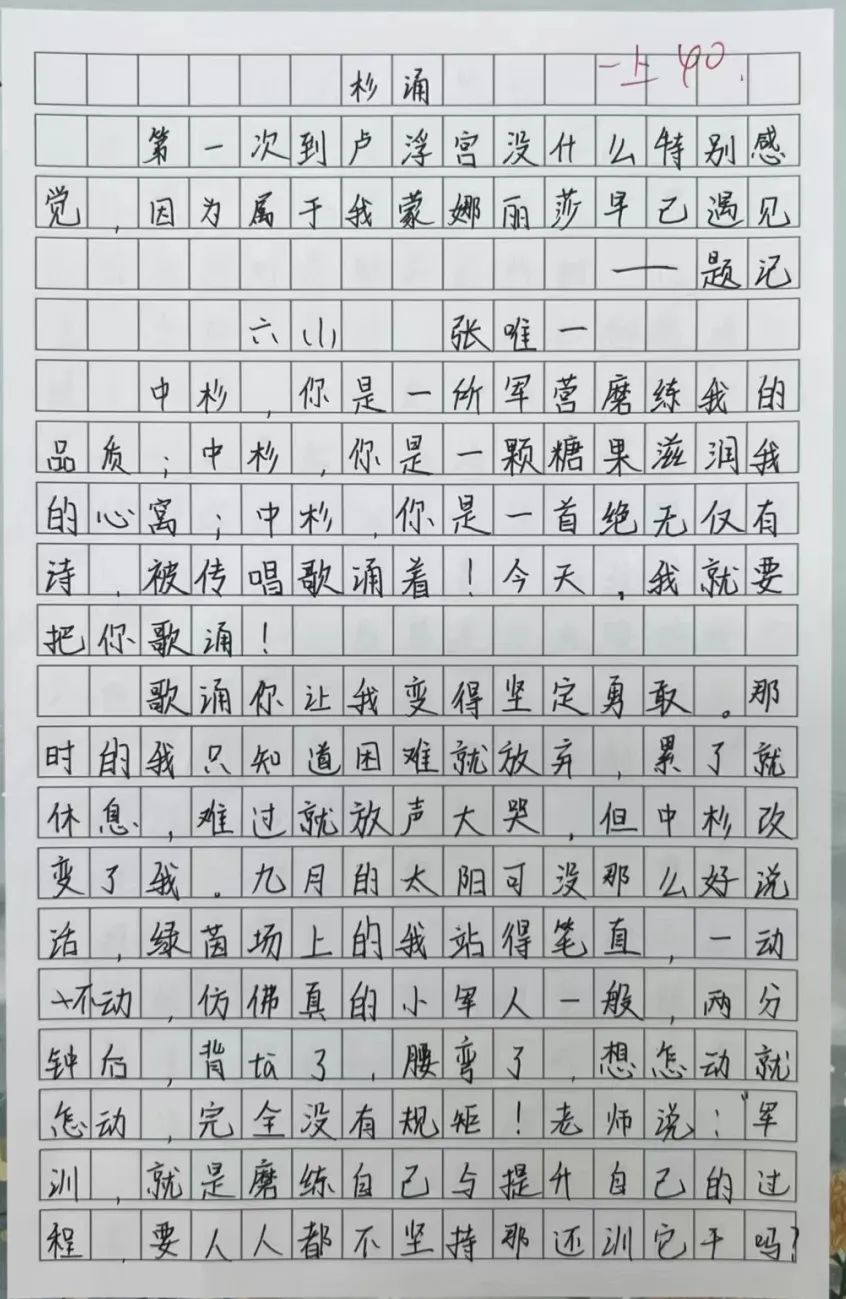 杉涌 一上 40.
第一次到卢浮宫没什么特别感
觉，因为属于我蒙娜丽莎早已遇见
——题记
六(1) 张唯一
中杉，你是一所军营磨练我的
品质；中杉，你是一颗糖果滋润我
的心窝；中杉，你是一首绝无仅有
诗，被传唱歌涌着！今天，我就要
把你歌涌！
歌涌你让我变得坚定勇敢。那
时的我只知道困难就放弃，累了就
休息，难过就放声大哭，但中杉改
变了我。九月的太阳可没那么好说
话，绿茵场上的我站得笔直，一动
不动，仿佛真的小军人一般，两分
钟后，背ta了，腰弯了，想怎动就
怎动，完全没有规矩！老师说：“军
训，就是磨练自己与提升自己的过
程，要人人都不坚持那还训它干吗？